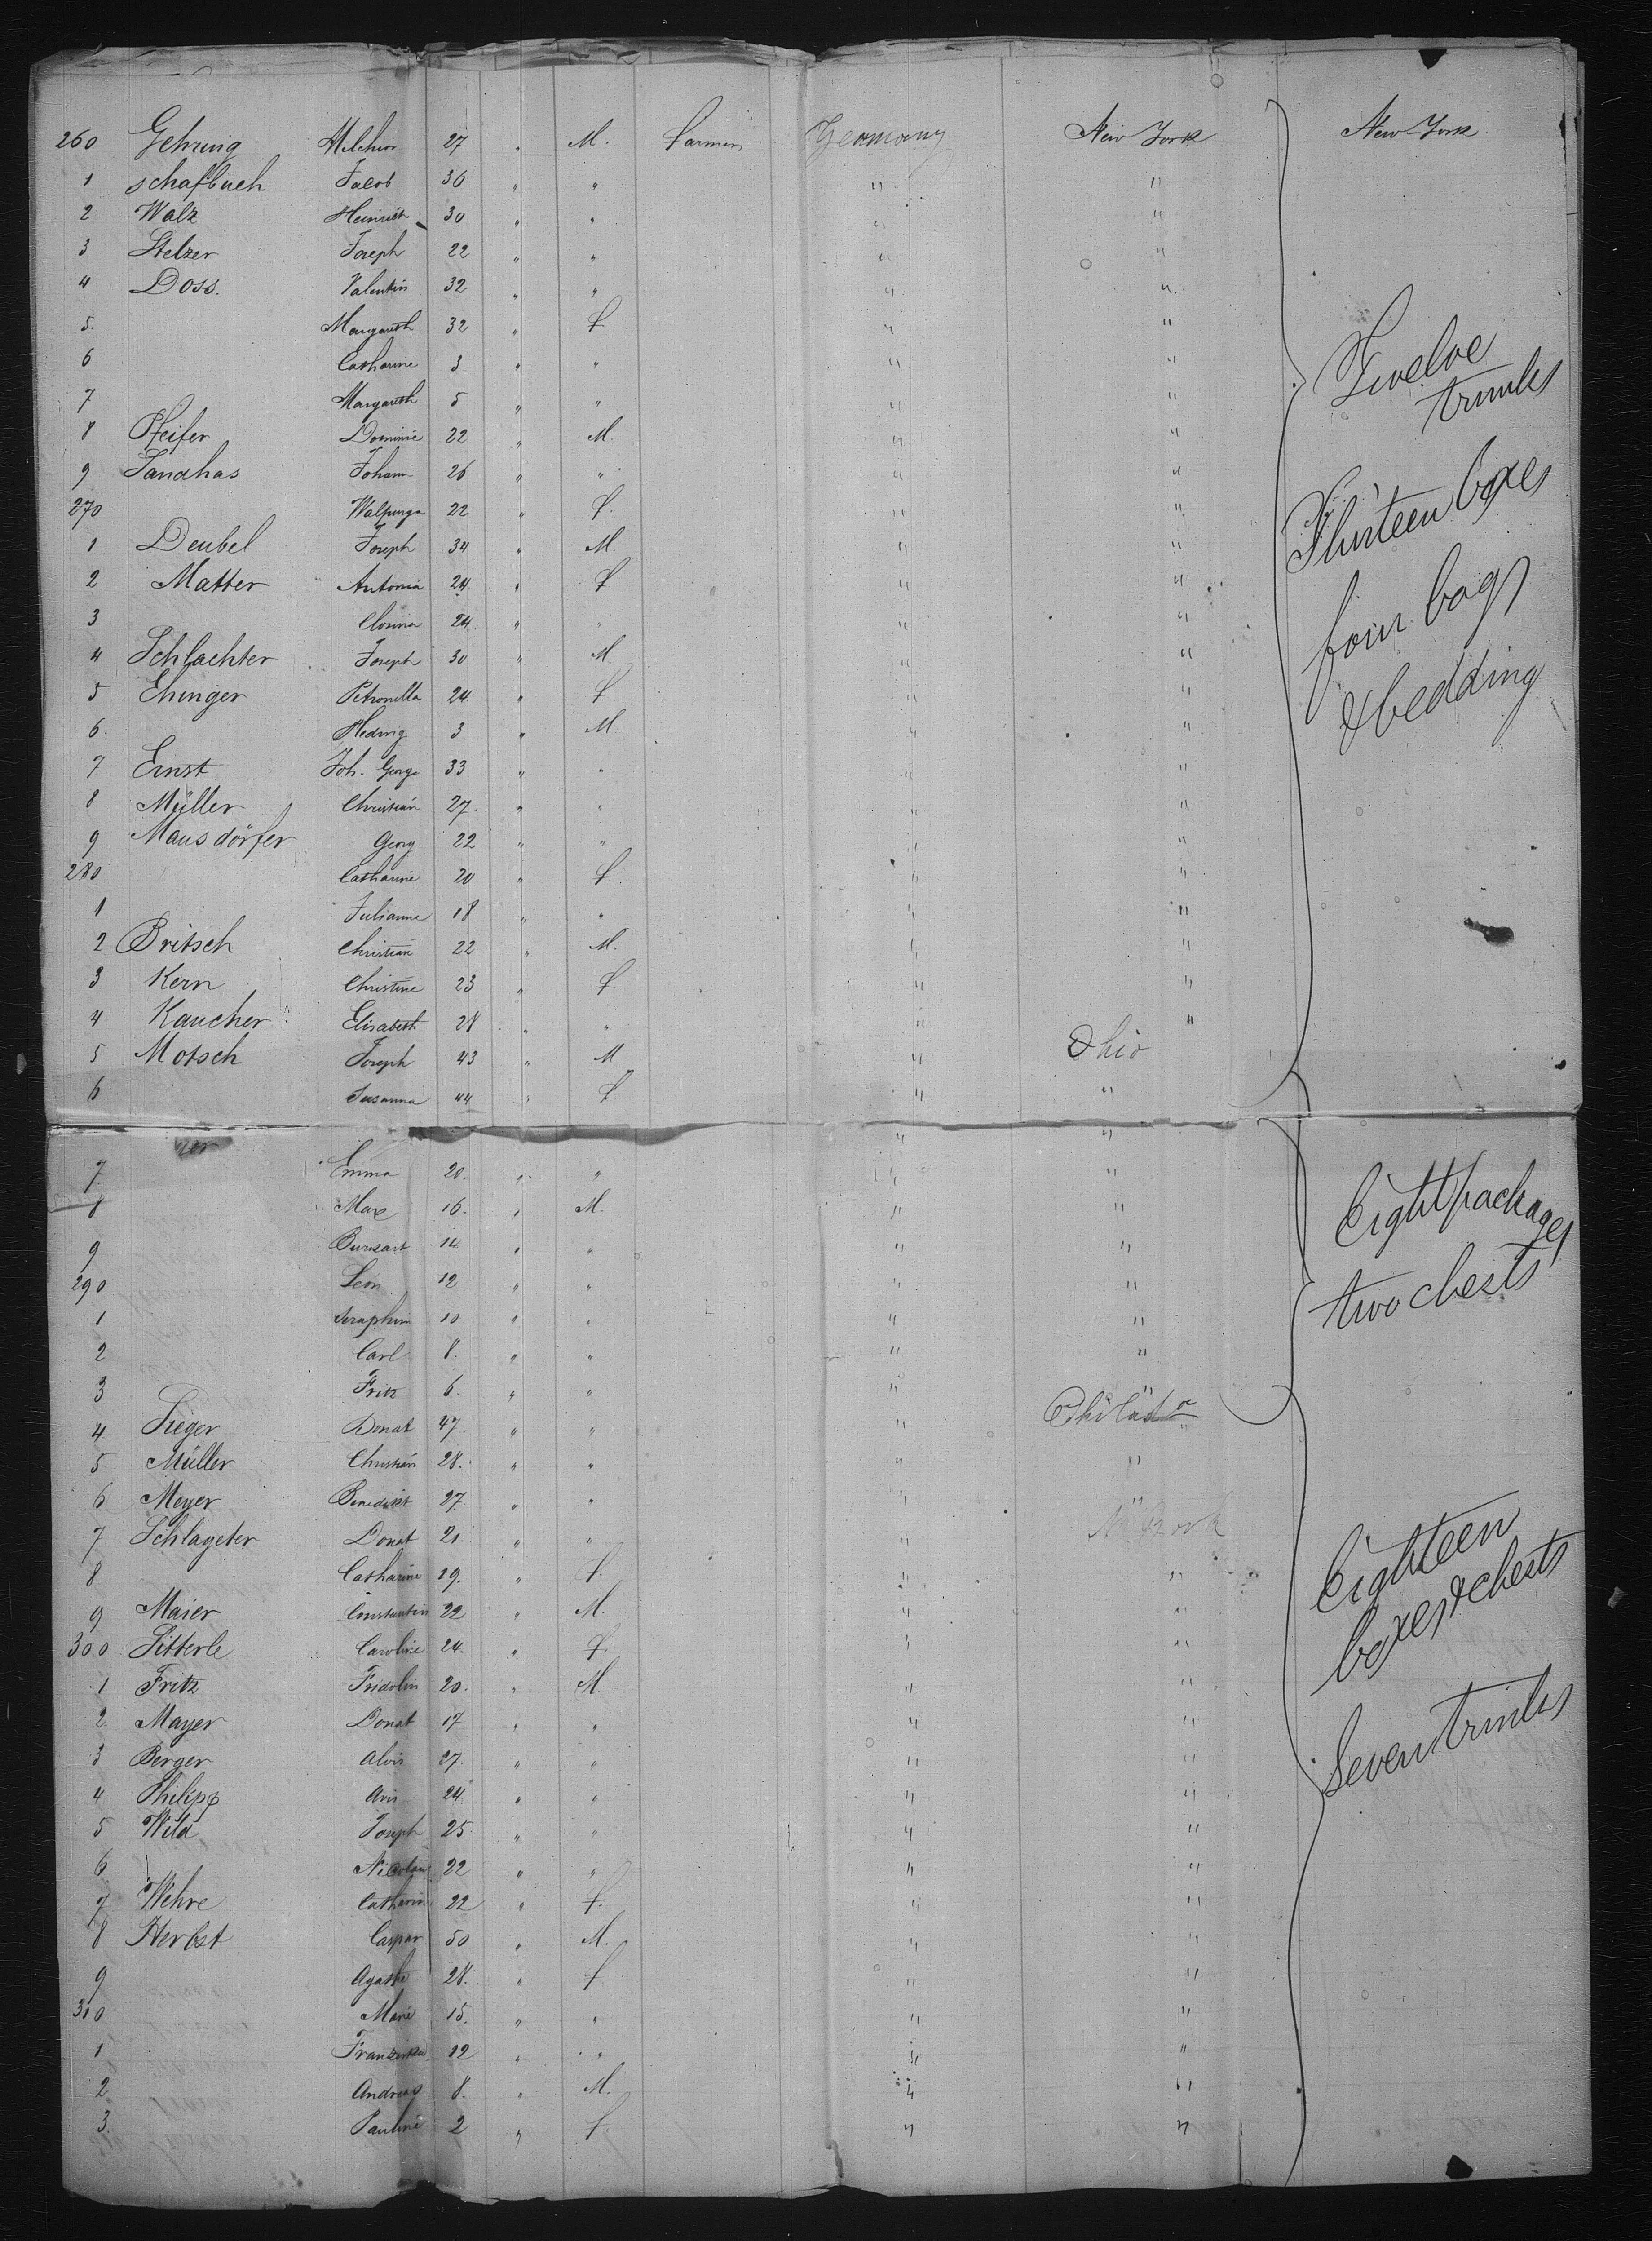 260 Gehring Melchior 27 " M. Farmer Germany New York New York
1 Schafbuch Jacob 36 " " " "
2 Walz Heinrich 30 " " " "
3 Stelzer Joseph 22 " " " "
4 Doss. Valentin 32 " " " "
5. Margareth 32 " f " "
6 Catharine 3 " " " "
7 Margareth 5 " " " "
Twelve trunks
8 Pfeifer Dominic 22 " M. " "
9 Sandhas Johann 26 " " " "
270 Walpurga 22 " f. " "
Thirteen boxes
1 Deubel Joseph 34 " M. " "
2 Matter Antonia 24 " f " "
3 24. " " " "
four bags
4 Schlachter Joseph 30 " M " "
5 Ehinger Petronella 24 " f " "
& bedding
6. Hedwig 3 " M " "
7 Ernst Joh. George 33 " " " "
8 Müller Christian 27. " " " "
9 Mausdörfer Georg 22 " " " "
280 Catharine 20 " f. " "
1 Julianne 18 " " " "
2 Britsch Christian 22 " M. " "
3 Kern Christine 23 " f " "
4 Kaucher Elisabeth 28 " " " "
5 Motsch Joseph 43 " M " Ohio
6 Susanna 44 " f " "
" "
7 Emma 20. " " " "
8 Max 16. " M. " "
Eight packages
9 14 " " " "
290 Leon 12 " " " "
two chests
1 Seraphim 10 " " " "
2 Carl 8. " " " "
3 Fritz 6. " " " "
4 Sieger Donat 47 " " " Philada
5 Müller Christian 28. " " " "
6 Meyer Benedikt 27 " " " "
7 Schlageter Donat 21. " " " N York
8 Catharine 19. " f. " "
Eighteen
9 Maier Constantin 22 " M. " "
boxes & chests
300 Sitterle Caroline 24. " f. " "
1 Fritz Fridolin 20. " M. " "
2 Mayer Donat 17 " " " "
Seven trunks
3 Berger Alois 27. " " " "
4 Philipp 24 " " " "
5 Wild Joseph 25 " " " "
6 Nicolaus 22 " " " "
7 Wehre Catharin 22 " f. " "
8 Herbst Caspar 50 " M. " "
9 Agathe 28. " f " "
310 Marie 15. " " " "
1 Franziska 12 " " " "
2 Andreas 8. " M. " "
3. Pauline 2 " f. " "